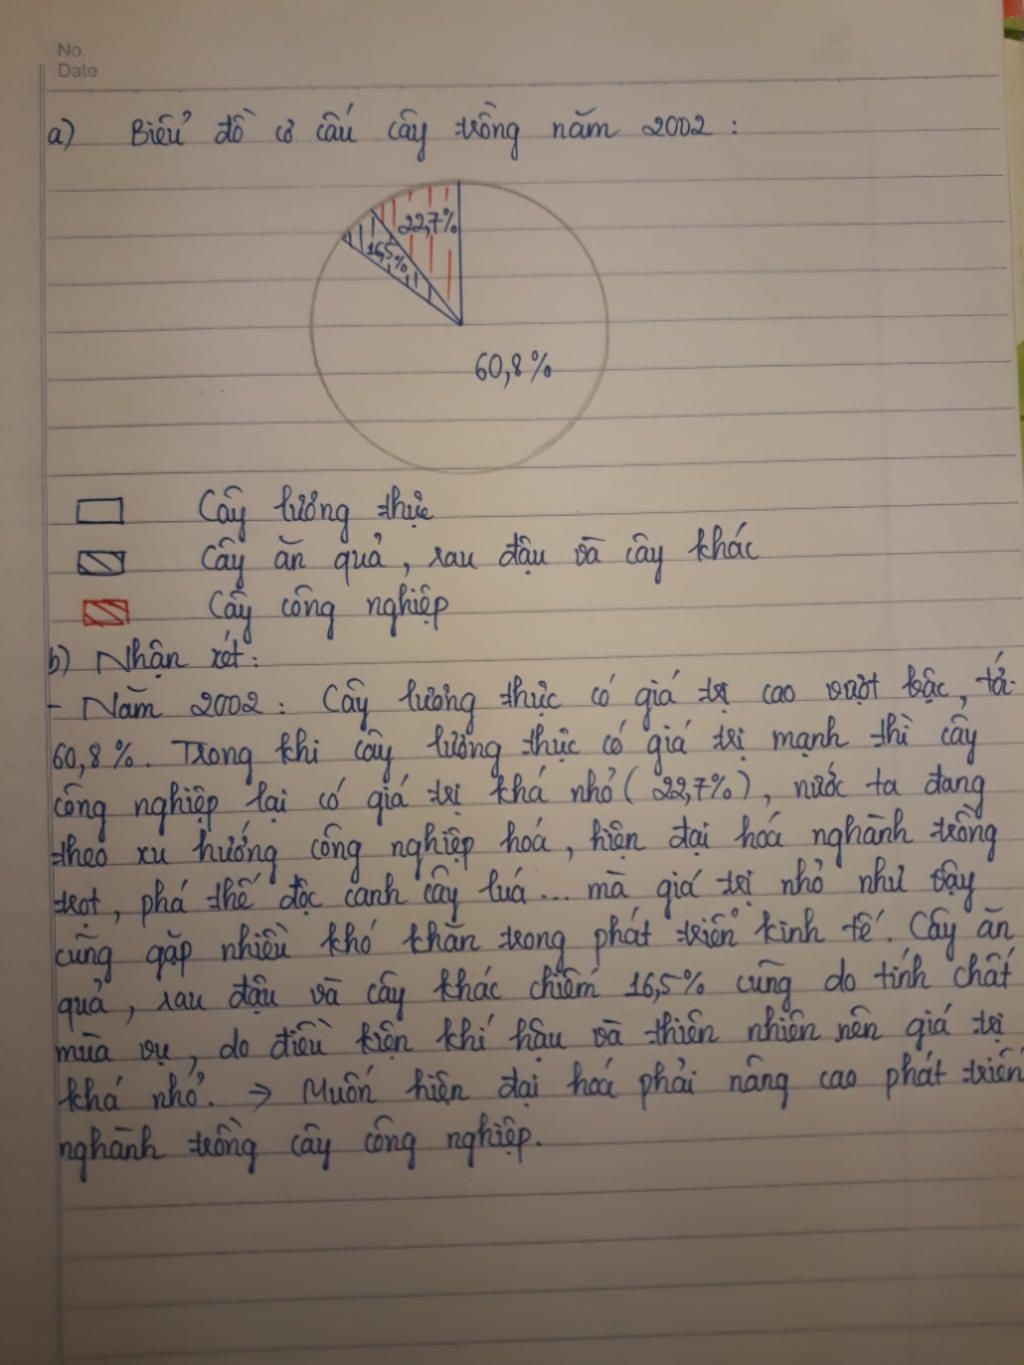 No.
Date
a) Biểu đồ cơ cấu cây trồng năm 2002 :
22,7%
16,5%
60,8%
Cây lương thực
Cây ăn quả, rau đậu và cây khác
Cây công nghiệp
b) Nhận xét:
- Năm 2002 : Cây lương thực có giá trị cao vượt bậc, tới
60,8%. Trong khi cây lương thực có giá trị mạnh thì cây
công nghiệp lại có giá trị khá nhỏ ( 22,7%), nước ta đang
theo xu hướng công nghiệp hoá, hiện đại hoá nghành trồng
trọt, phá thế độc canh cây luá ... mà giá trị nhỏ như vậy
cũng gặp nhiều khó khăn trong phát triển kinh tế. Cây ăn
quả, rau đậu và cây khác chiếm 16,5% cũng do tính chất
mùa vụ, do điều kiện khí hậu và thiên nhiên nên giá trị
khá nhỏ. → Muốn hiện đại hoá phải nâng cao phát triển
nghành trồng cây công nghiệp.